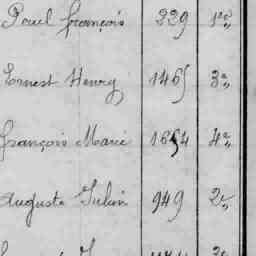 Paul François 229 1re
Ernest Henry 1465 3e
François Marie 1654 4e
Auguste Julien 949 2e